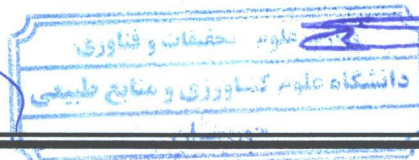 علوم تحقیقات و فناوری
دانشگاه علوم کشاورزی و منابع طبیعی